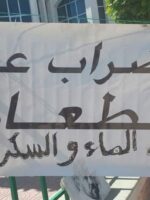 ضراب عـ
طعا
الماء والسكر